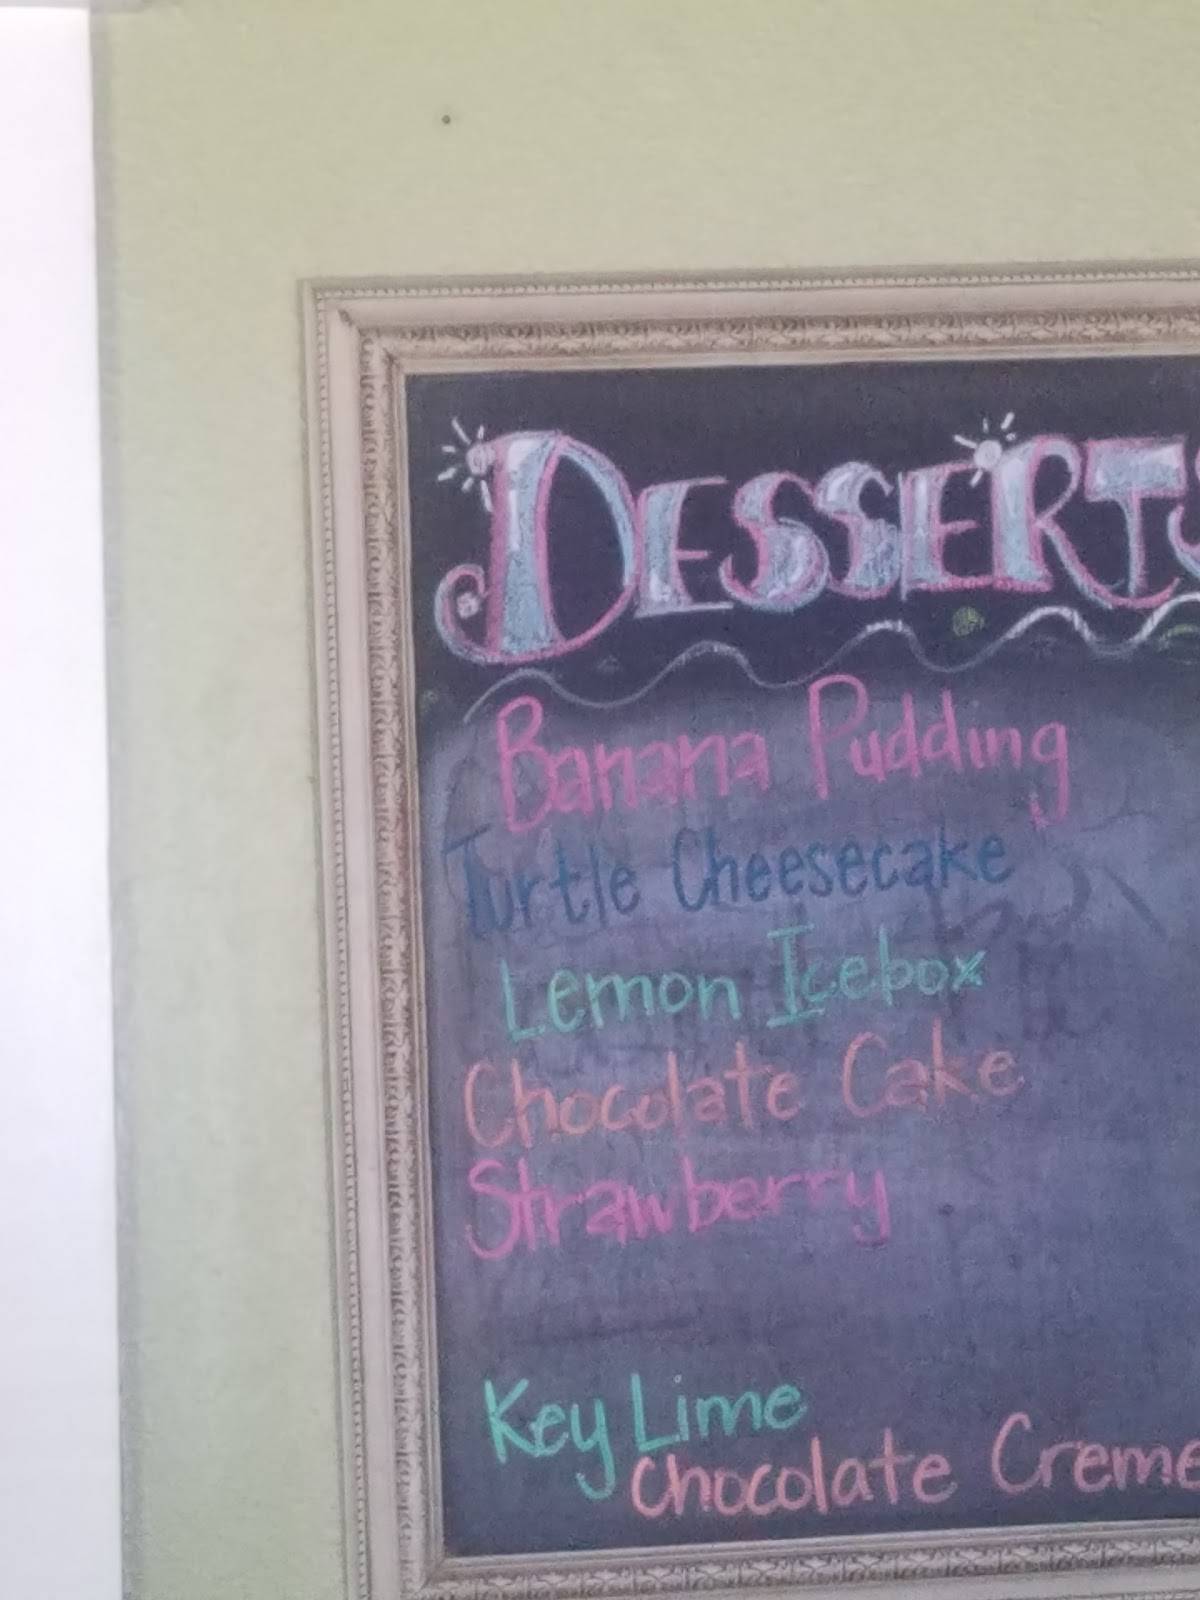 DESSERTS
Banana Pudding
Turtle Cheesecake
Lemon Icebox
Chocolate Cake
Strawberry
Key Lime
Chocolate Creme